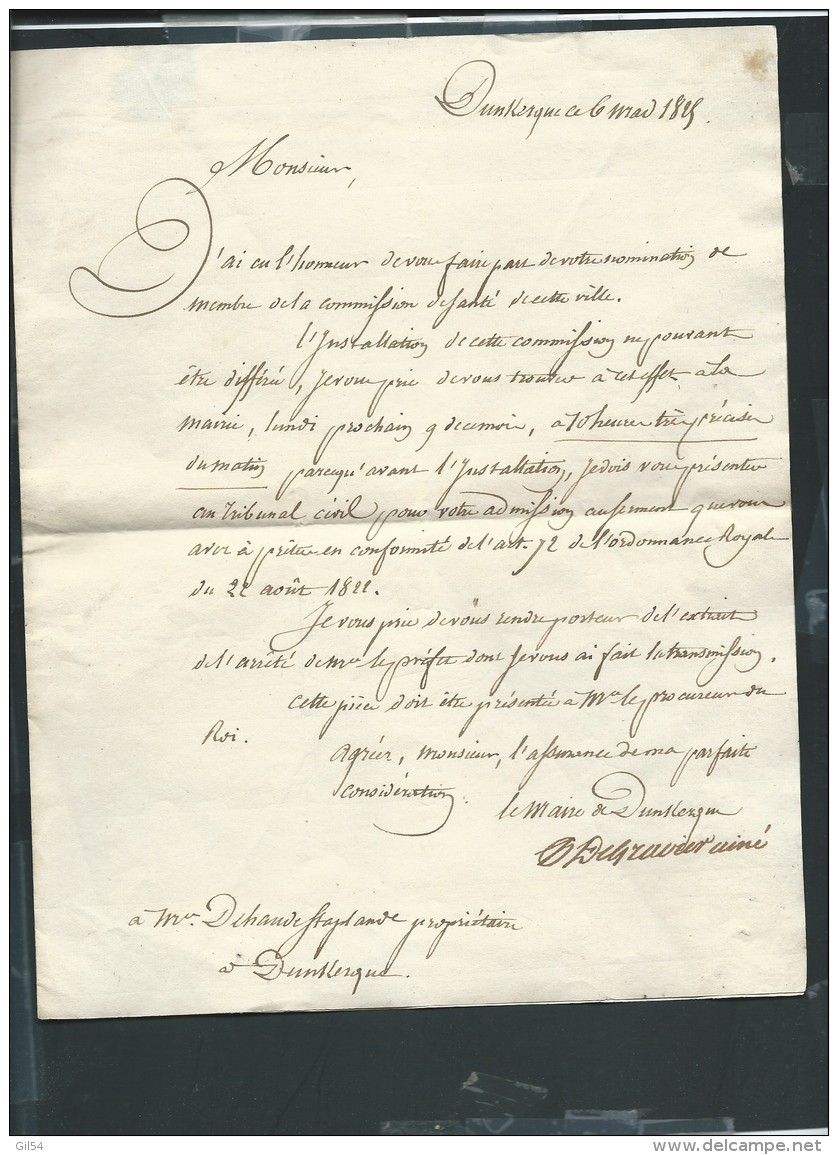 Dunkerque ce 6 mai 1825.
Monsieur,
J'ai eu l'honneur de vous faire part de votre nomination de
membre de la commission de santé de cette ville.
l'Installation de cette commission ne pouvant
être différée, Je vous prie de vous trouver à cet effet à la
mairie, lundi prochain 9 du mois, à 10 heures très précises
du matin parcequ'avant l'Installation, Je dois vous présenter
au Tribunal civil pour votre admission au serment que vous
avez à prêter en conformité de l'art. 72 de l'ordonnance Royale
du 22 août 1822.
Je vous prie de vous rendre porteur de l'extrait
de l'arrêté de Mr le préfet dont Je vous ai fait la transmission.
Cette pièce doit être présentée à Mr le procureur du
Roi.
Agréez, monsieur, l'assurance de ma parfaite
considération.
le Maire de Dunkerque
Degravier ainé
à Mr. Dehau de Staplande propriétaire
à Dunkerque.
Gil54
www.delcampe.net